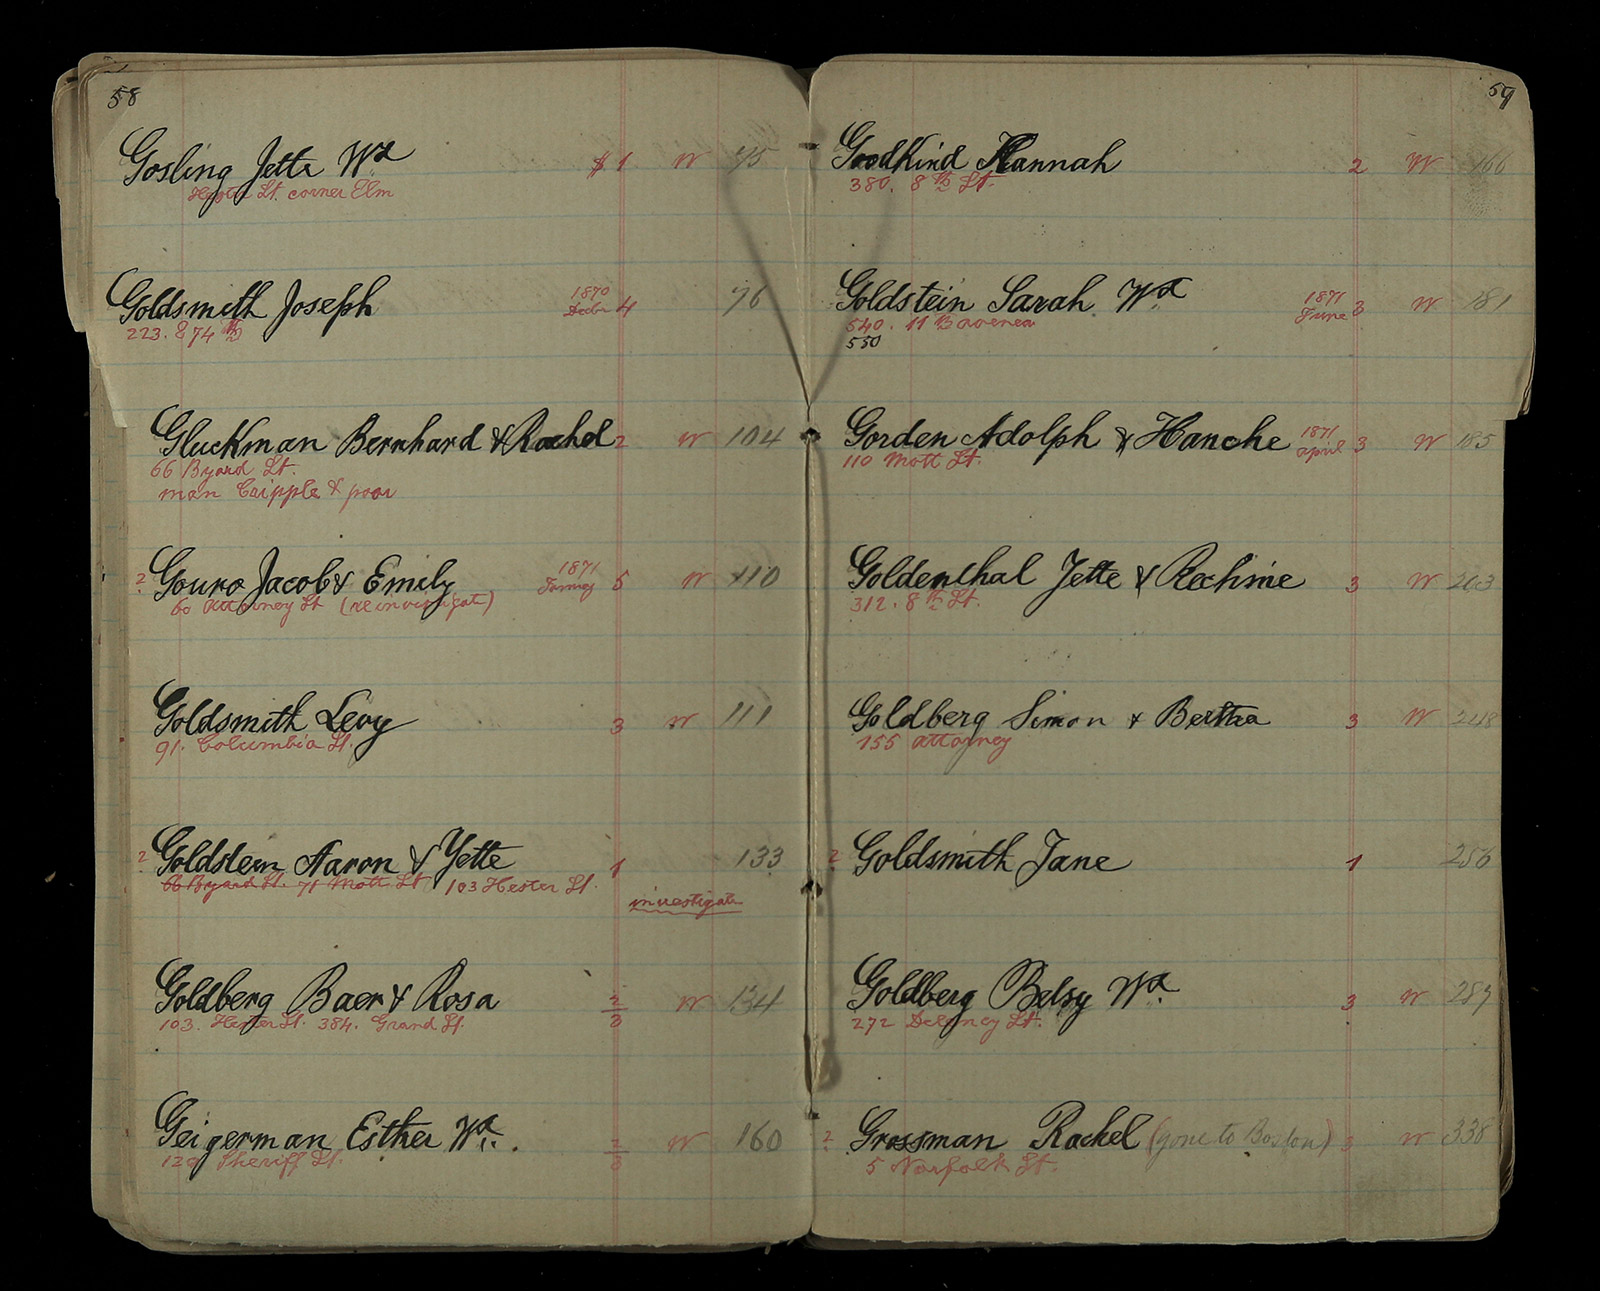 58
Gosling Jette Wd $1 W 75
Hester St. corner Elm
Goldsmith Joseph 1870 Decbr 4 76
223. E 74 th
Gluckman Bernhard & Rachel 2 W 104
66 Byard St.
man Cripple & poor
2 Gouro Jacob & Emily 1871 5 W 110
60 Attorney St (reinvistigate)
Goldsmith Levy 3 W 111
91. Columbia St.
2 Goldstein Aaron & Yette 1 133
66 Byard St. 71 Mott St 103 Hester St.
investigate
Goldberg Baer & Rosa 2/3 W 134
103. Hester St. 384. Grand St.
Geigerman Esther Wd. 2/3 W 160
129 Sheriff St.
59
Goodkind Hannah 2 W 166
380. 8 th St.
Goldstein Sarah Wd 1871 June 3 W 181
540. 11 B avenea
550
Gorden Adolph & Hanche 1871 April 3 W 185
110 Mott St.
Goldenthal Jette & Rechme 3 W 203
312. 8 th St.
Goldberg Simon & Bertha 3 W 218
155 attorney
2 Goldsmith Jane 1 256
Goldberg Belsy Wd. 3 W 287
272 Delancy St.
2 Grossman Rachel (gone to Boston) 3 W 338
5 Norfolk St.